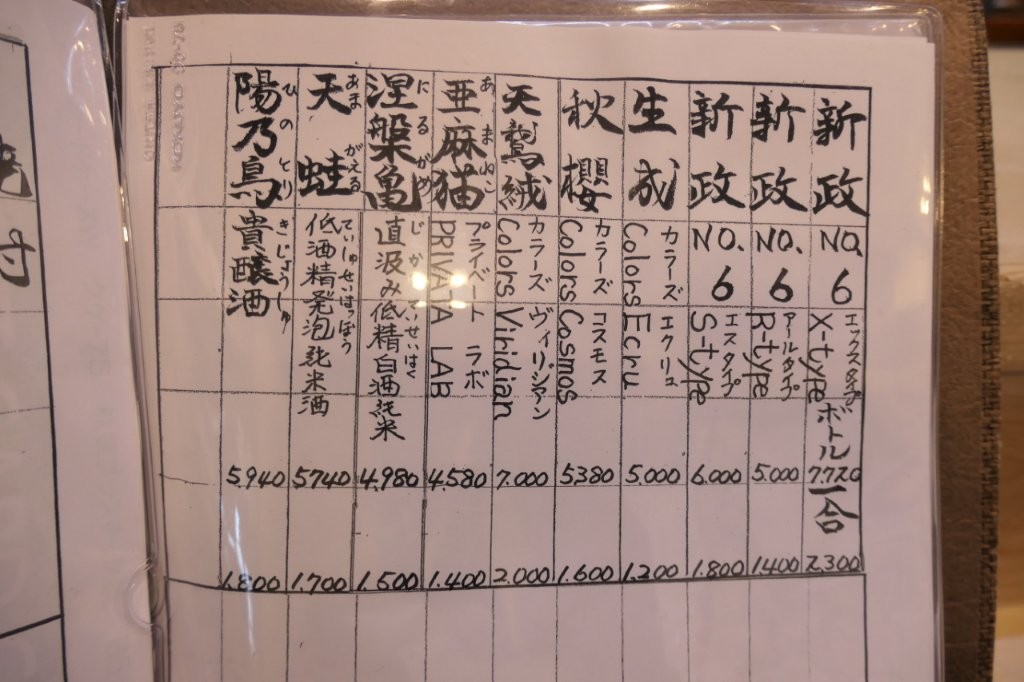 新政 NO.6 X-type エックスタイプ ボトル 7.720 一合 2.300
新政 NO.6 R-type アールタイプ 5.000 1400
新政 NO.6 S-type エスタイプ 6.000 1.800
生成 Colors Ecru カラーズ エクリュ 5.000 1.200
秋櫻 Colors Cosmos カラーズ コスモス 5.380 1.600
天鵞絨 Colors Viridian カラーズ ヴィリジアン 7.000 2.000
亜麻猫 あまねこ PRIVATA LAB プライベート ラボ 4.580 1.400
涅槃亀 にるがめ 直汲み低精白酒純米 4.980 1.500
天蛙 あまがえる 低酒精発泡純米酒 ていしゅせいはっぽう 5740 1.700
陽乃鳥 ひのとり 貴醸酒 きじょうしゅ 5.940 1.800